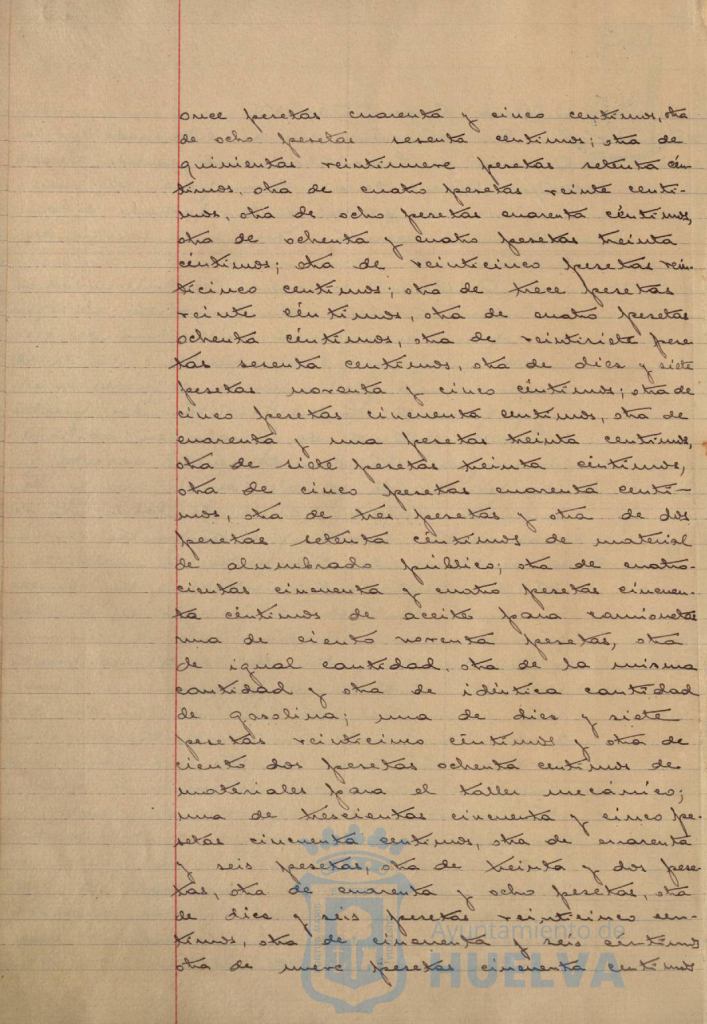 once pesetas cuarenta y cinco centimos, otra
de ocho pesetas sesenta centimos; otra de
quinientas veintinueve pesetas setenta cén-
timos, otra de cuatro pesetas veinte centi-
mos, otra de ocho pesetas cuarenta céntimos,
otra de ochenta y cuatro pesetas treinta
céntimos; otra de veinticinco pesetas vein-
ticinco centimos; otra de trece pesetas
veinte céntimos, otra de cuatro pesetas
ochenta céntimos, otra de veintisiete pese-
tas sesenta centimos, otra de diez y siete
pesetas noventa y cinco céntimos; otra de
cinco pesetas cincuenta centimos, otra de
cuarenta y una pesetas treinta centimos,
otra de siete pesetas treinta céntimos,
otra de cinco pesetas cuarenta centi-
mos, otra de tres pesetas y otra de dos
pesetas setenta céntimos de material
de alumbrado público; otra de cuatro-
cientas cincuenta y cuatro pesetas cincuen-
ta céntimos de aceite para camionetas
una de ciento noventa pesetas, otra
de igual cantidad, otra de la misma
cantidad y otra de idéntica cantidad
de gasolina; una de diez y siete
pesetas veinticinco céntimos y otra de
ciento dos pesetas ochenta centimos de
materiales para el taller mecánico;
una de trescientas cincuenta y cinco pe-
setas cincuenta centimos, otra de cuarenta
y seis pesetas, otra de treinta y dos pese-
tas, otra de cuarenta y ocho pesetas, otra
de diez y seis pesetas veinticinco cen-
timos, otra de cincuenta y seis centimos
otra de nueve pesetas cincuenta centimos
Ayuntamiento de
HUELVA